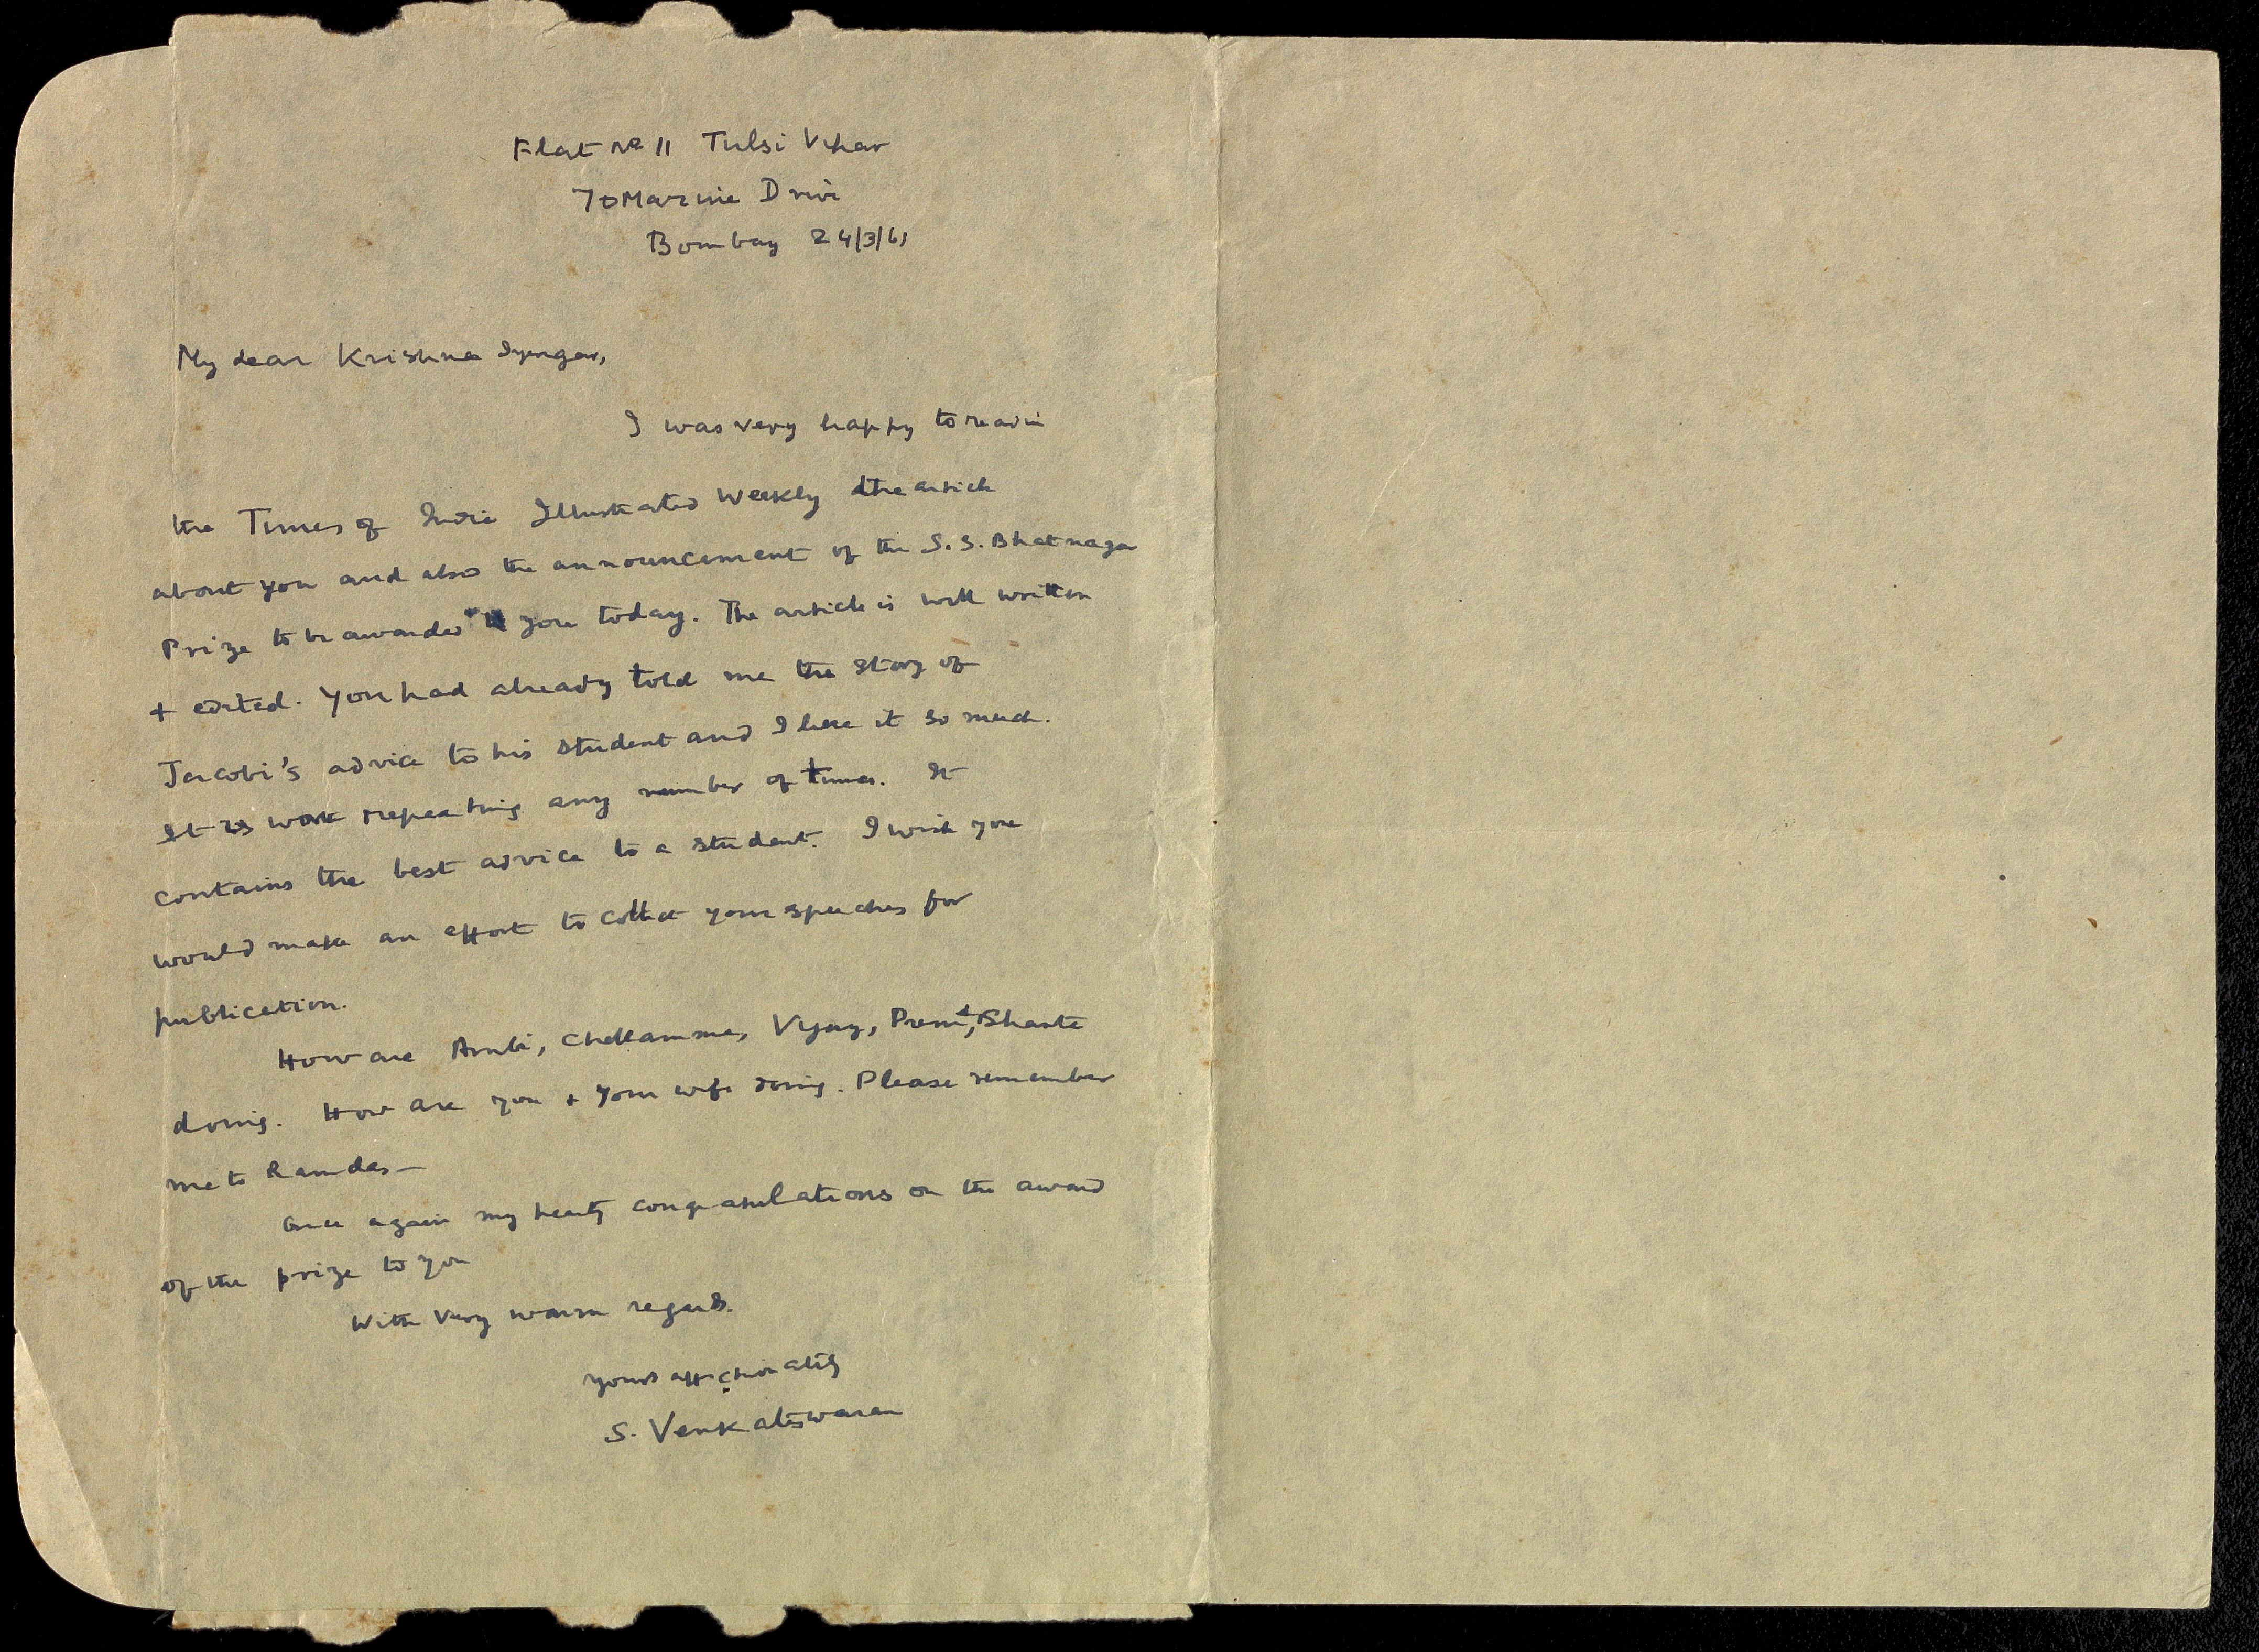 Flat No 11 Tulsi Vihar
70 Marine Drive
Bombay 24/3/61
My dear Krishna Iyengar,
I was very happy to read in
the Times of India Illustrated Weekly the article
about you and also the announcement of the S. S. Bhatnagar
Prize to be awarded to you today. The article is well written
+ edited. You had already told me the story of
Jacobi's advice to his student and I like it so much.
It is worth repeating any number of times. It
contains the best advice to a student. I wish you
would make an effort to collect your speeches for
publication.
How are Ambi, Chellamma, Vijay, Prem, Shanta
doing. How are you + your wife doing. Please remember
me to Ramdas —
Once again my hearty congratulations on the award
of the prize to you
With very warm regards.
Yours affectionately
S. Venkateswaran